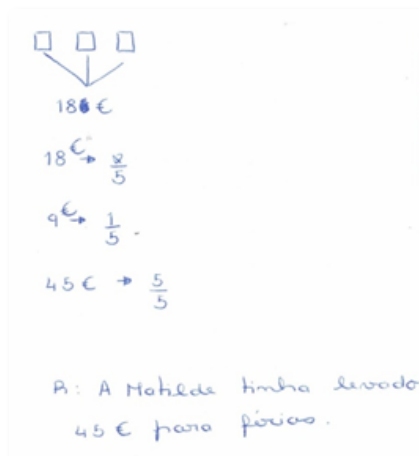 18 €
18 € → 2/5
9 € → 1/5.
45 € → 5/5
R: A Matilde tinha levado
45 € para férias.